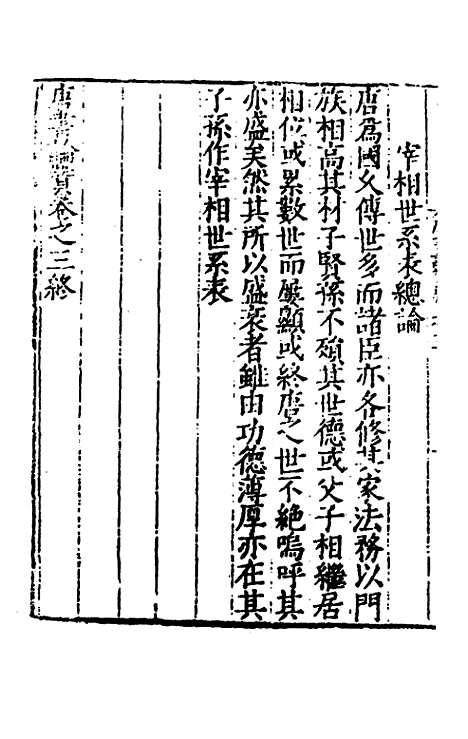 宰相世系表總論
唐爲國久傳世多而諸臣亦各修其家法務以門
族相高其材子賢孫不殞其世德或父子相繼居
相位或累數世而屢顯或終唐之世不絕嗚呼其
亦盛矣然其所以盛衰者雖由功德薄厚亦在其
子孫作宰相世系表
唐書論贊卷之三終